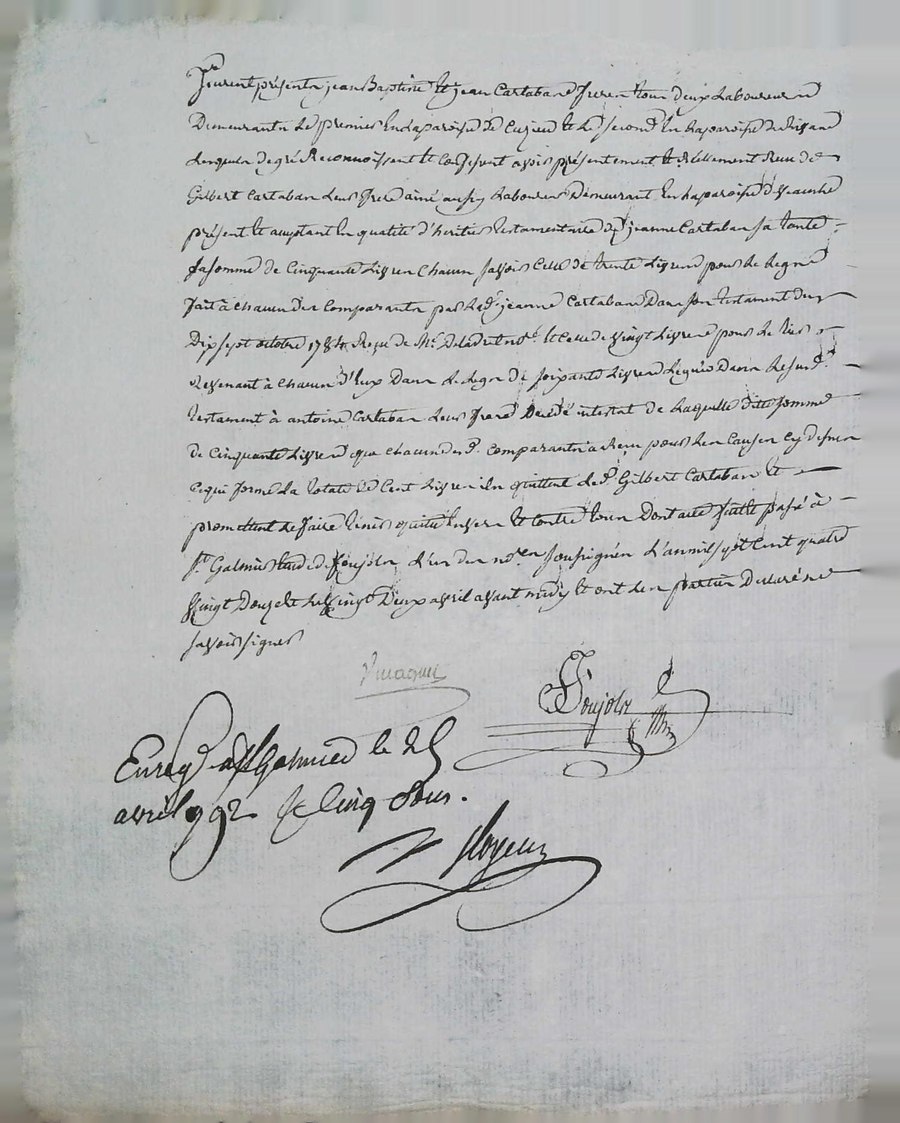 Furent présents jean Baptiste et jean Cartaban frères tous deux Laboureurs
Demeurants le premier en la paroisse de Cuzieu et le second en la paroisse de Rivas
de gré Reconnoissent et Confessent avoir présentement et réellement Reçu de
Gilbert Cartaban leur frere ainé aussy Laboureur Demeurant en la paroisse de Veauche
présent et acceptant en qualité d'heritier testamentaire de jeanne Cartaban sa tante
la somme de Cinquante Livres Chacun savoir Celle de trente Livres pour le Legue
fait à Chacun des Comparants par lad. jeanne Cartaban Dans son testament du
Dix sept octobre 1784 Reçu de Me. et Celle de vingt Livres pour le tier
Revenant à Chacun d'Eux Dans le Legue de soixante Livres Legués Dans le susd.
testament à antoine Cartaban leur frere Décédé intestat de Laquelle ditte somme
de Cinquante Livres que Chacun desd. Comparants a Reçu pour les Causes Cy dessus
Ce qui forme La totale de Cent Livres ils en quittent led. Gilbert Cartaban et
promettent de faire tenir quitte Envers et Contre tous Dont acte fait et passé à
St. Galmier Etude de foujols L'un des nores. soussignés L'an mil sept Cent quatre
Vingt Douze et le Vingt Deux avril avant midy et ont les parties Declaré ne
savoir signer
foujols
Enregé. à St Galmier le 28
avril 992 R Cinq sous.